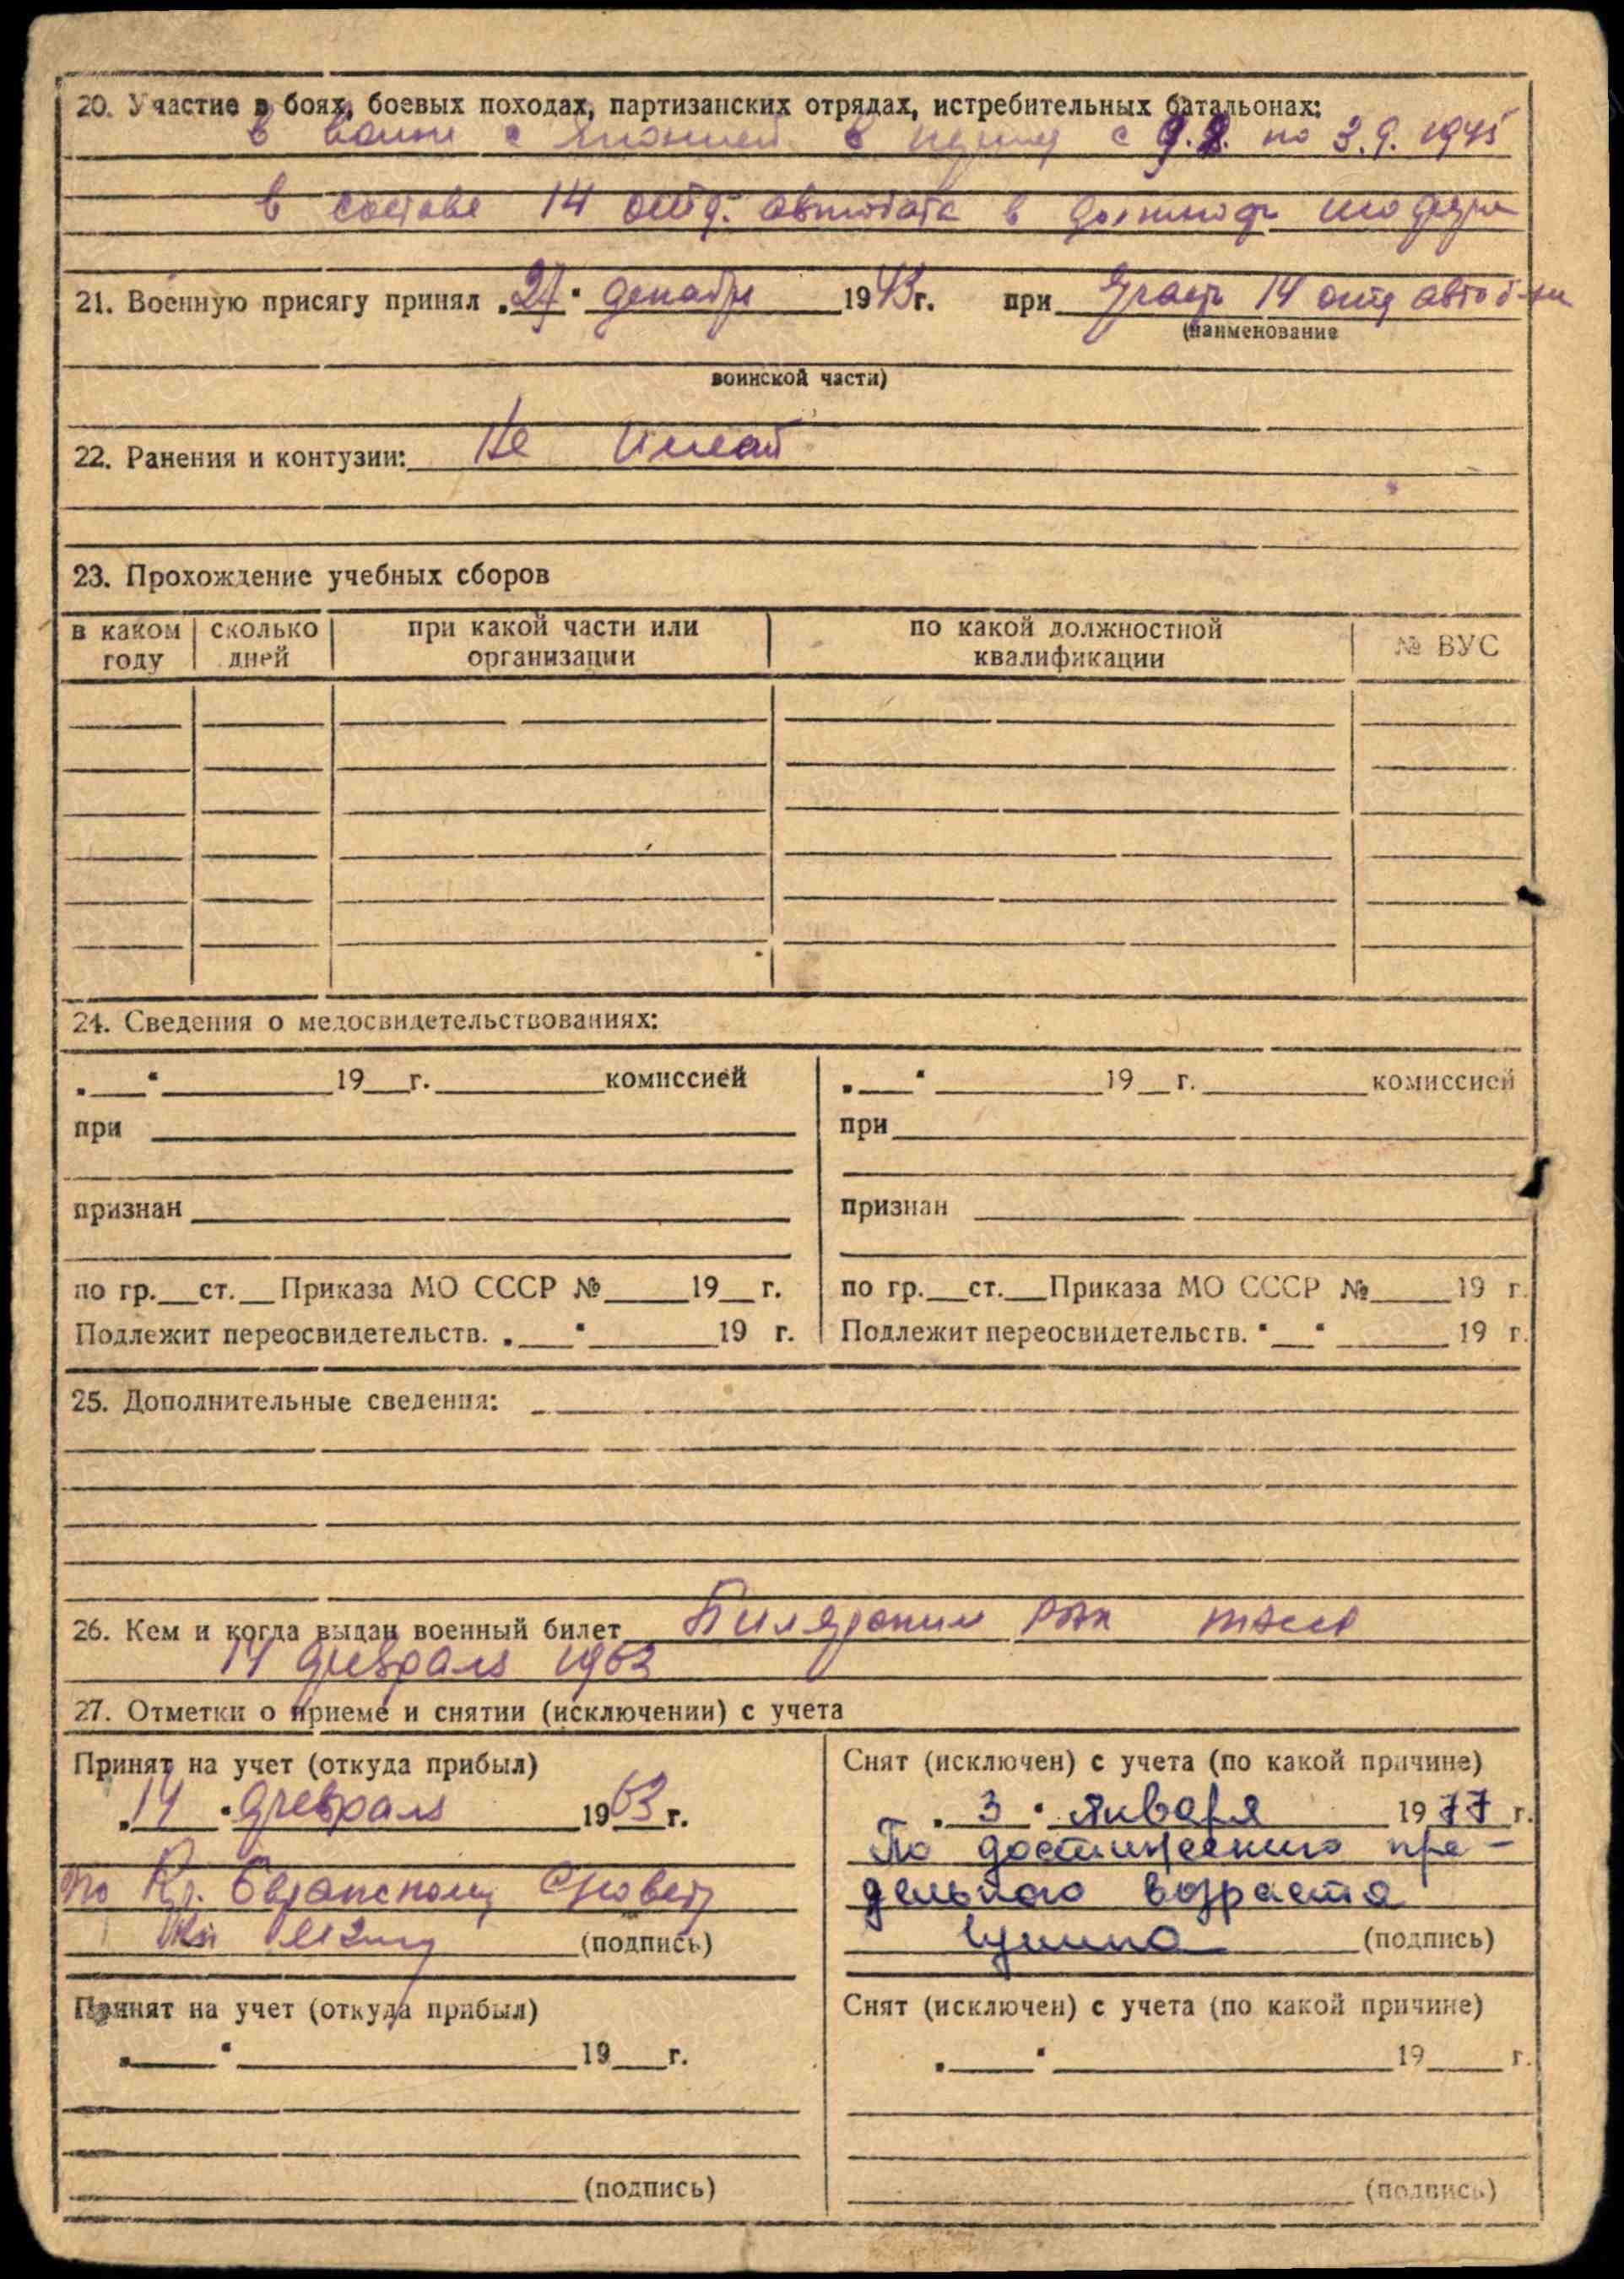 20. Участие в боях, боевых походах, партизанских отрядах, истребительных батальонах:
в войне с Японией в период с 9.8. по 3.9.1945
в составе 14 отд. автобата в должнос шофера
21. Военную присягу принял „27" декабря 1943 г. при 14 отд автоб-не
(наименование
воинской части)
22. Ранения и контузии: Не имеет
23. Прохождение учебных сборов
в каком году | сколько дней | при какой части или организации | по какой должностной квалификации | № ВУС
24. Сведения о медосвидетельствованиях:
„__" ____ 19__г. ____ комиссией
при
признан
по гр.__ст.__Приказа МО СССР №____19__г.
Подлежит переосвидетельств. „__" ____19 г.
„__" ____ 19__г. ____ комиссией
при
признан
по гр.__ст.__Приказа МО СССР №____19 г.
Подлежит переосвидетельств. "__" ____19 г.
25. Дополнительные сведения:
26. Кем и когда выдан военный билет Билярским РВК ТАССР
14 февраля 1963
27. Отметки о приеме и снятии (исключении) с учета
Принят на учет (откуда прибыл)
„14" февраля 1963 г.
по Кр. Совету
(подпись)
Снят (исключен) с учета (по какой причине)
„3" января 1977 г.
По достижению пре-
дельного возраста
(подпись)
Принят на учет (откуда прибыл)
„__" ____19__г.
(подпись)
Снят (исключен) с учета (по какой причине)
„__" ____19__г.
(подпись)